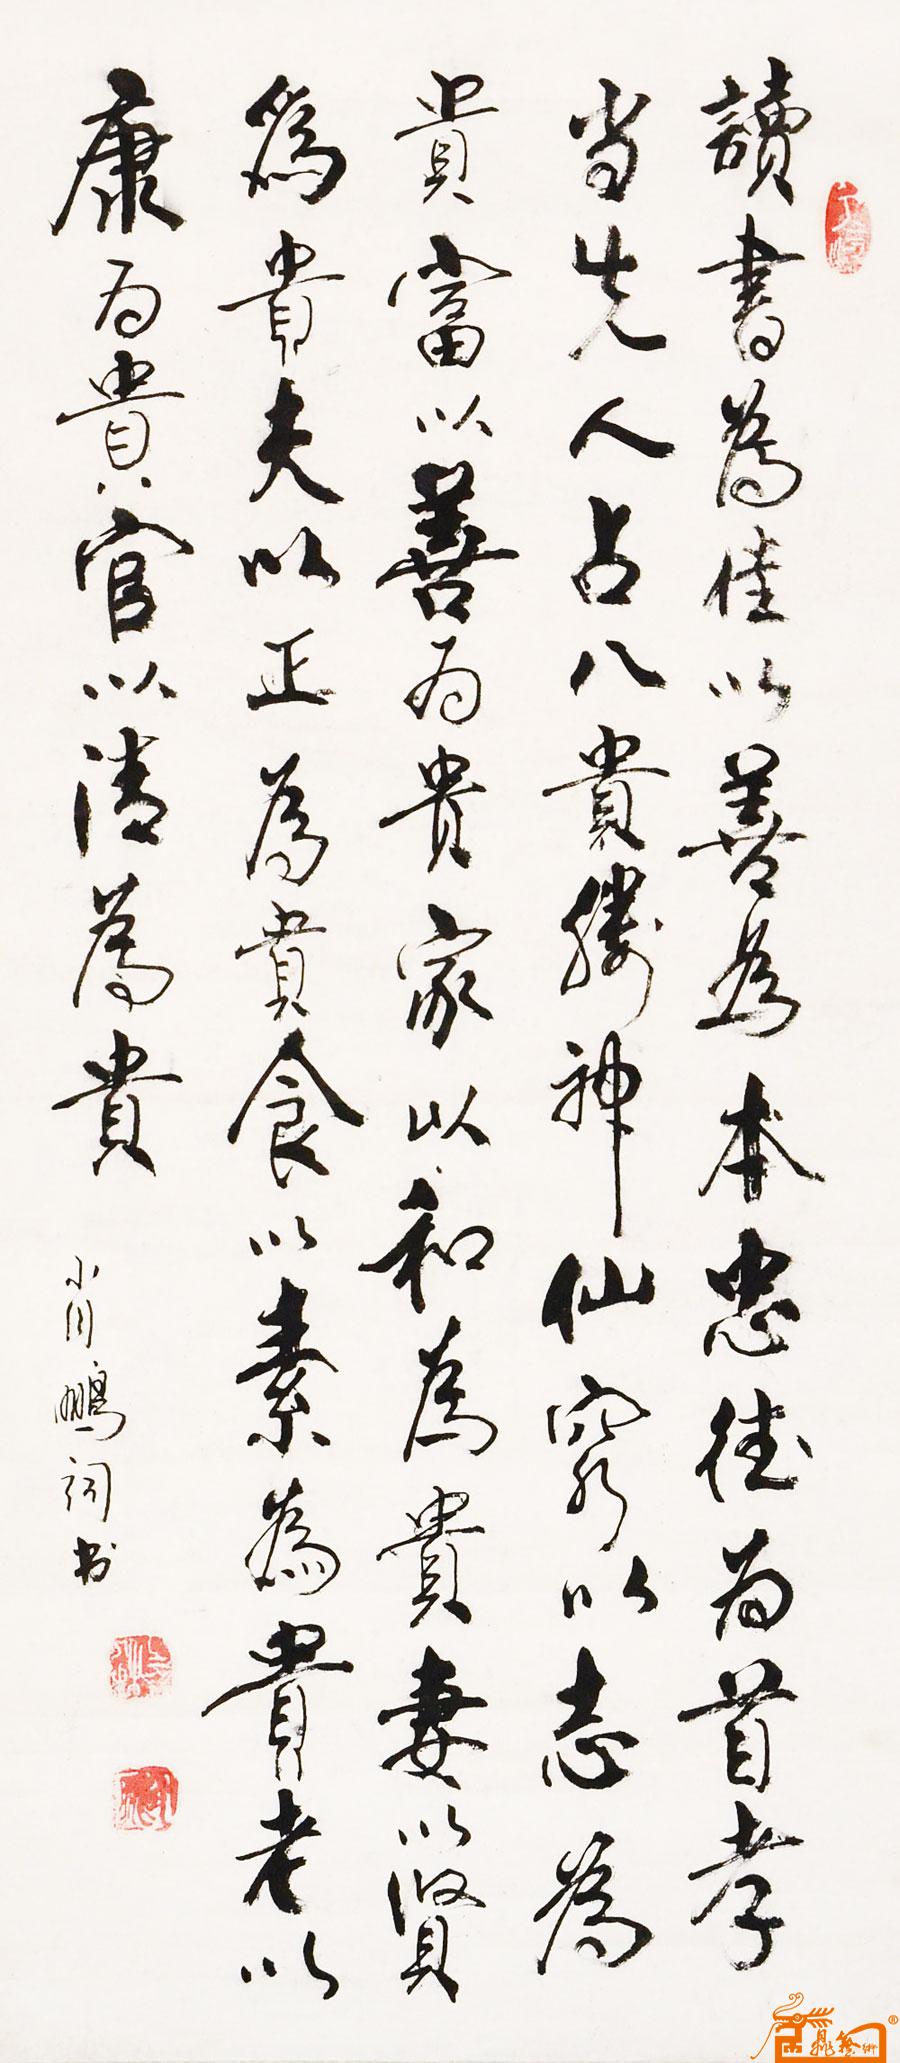 讀書為佳以善為本忠德为首孝
当先人占八貴勝神仙窮以志為
貴富以善为貴家以和為貴妻以賢
為貴夫以正為貴食以素為貴老以
康为貴官以清為貴
肖鵬詞书